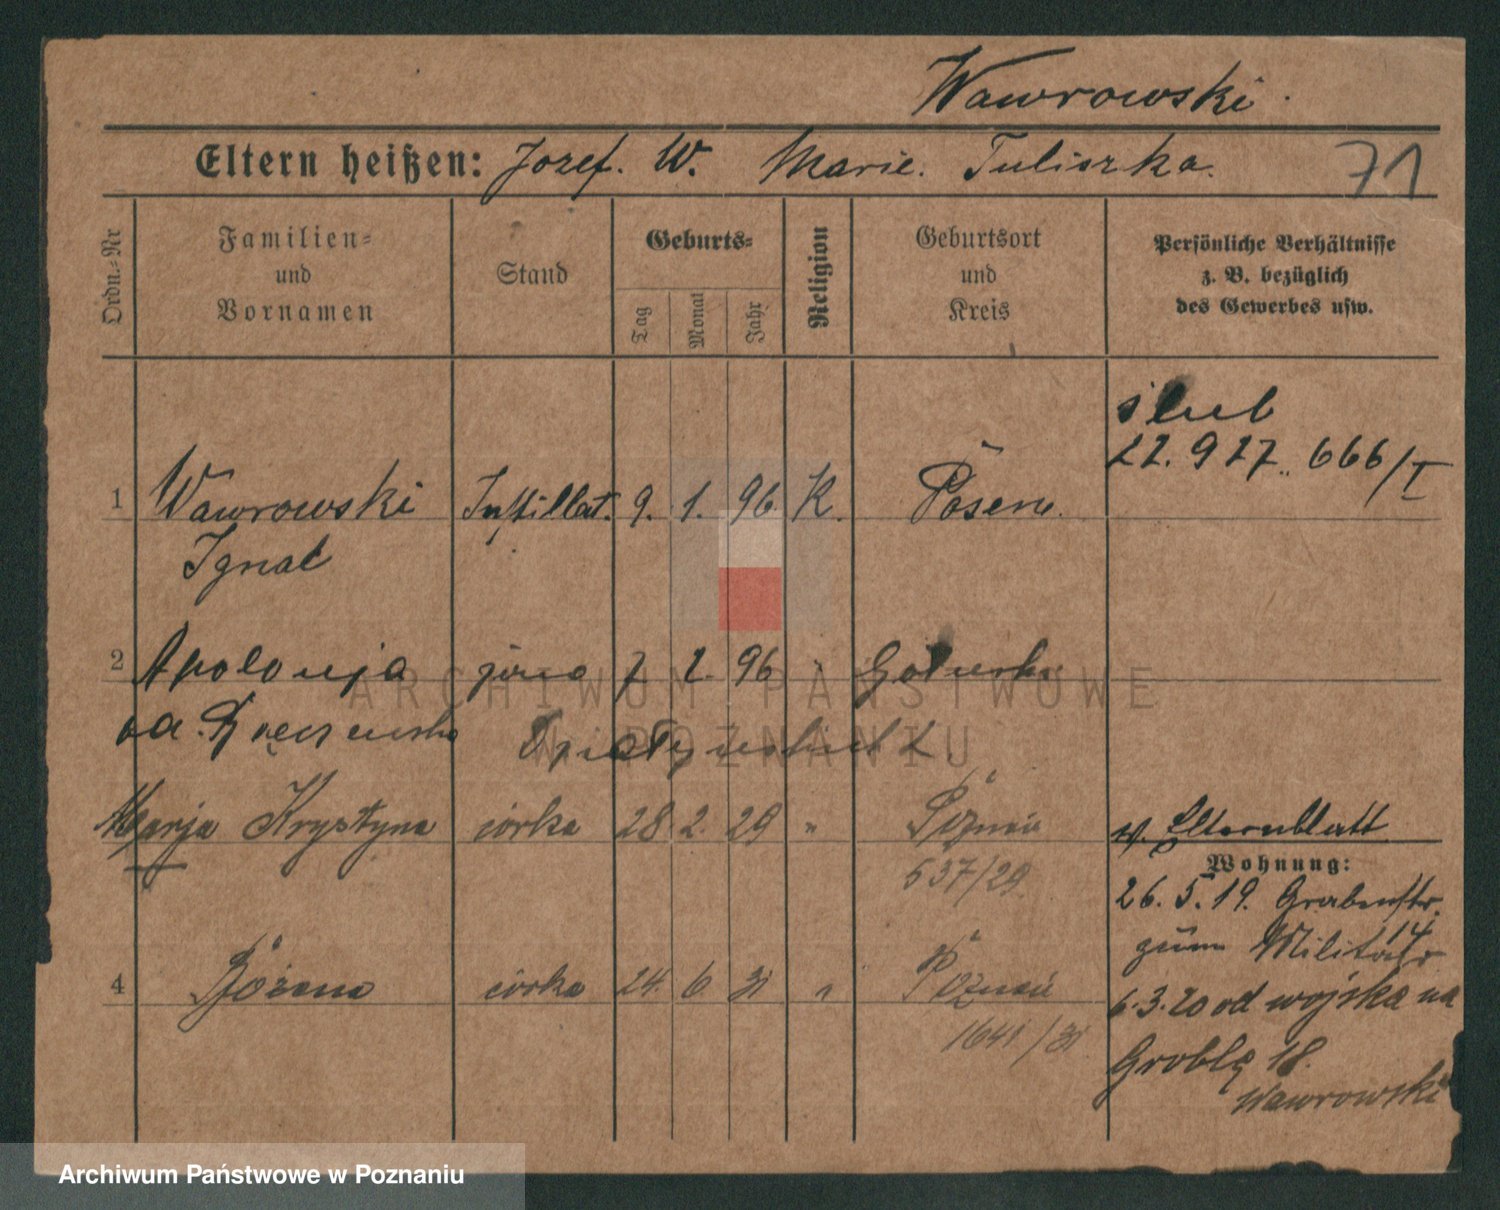 Wawrowski.
Eltern heißen: Jozef. W. Marie. Tuliszka. 71
Ordn.-Nr
Familien-
und
Vornamen
Stand
Geburts-
Tag
Monat
Jahr
Religion
Geburtsort
und
Kreis
Persönliche Verhältnisse
z. B. bezüglich
des Gewerbes usw.
ślub
22. 9 27. 666/I
1 Wawrowski Instillat. 9. 1. 96. K. Posen.
Ignat
2 Apolonja żona 7 2. 96 " 
Marja Krystyna córka 28 2. 29 " Poznań w. Elternblatt
537/29
Wohnung:
26. 5. 19. Grabenstr.
14
zum Militär
4 Bożena córka 24. 6. 31 " Poznań
1641/31
6. 3. 20 od wojska na
Groblę 18.
Wawrowski
ARCHIWUM PAŃSTWOWE
W POZNANIU
Archiwum Państwowe w Poznaniu